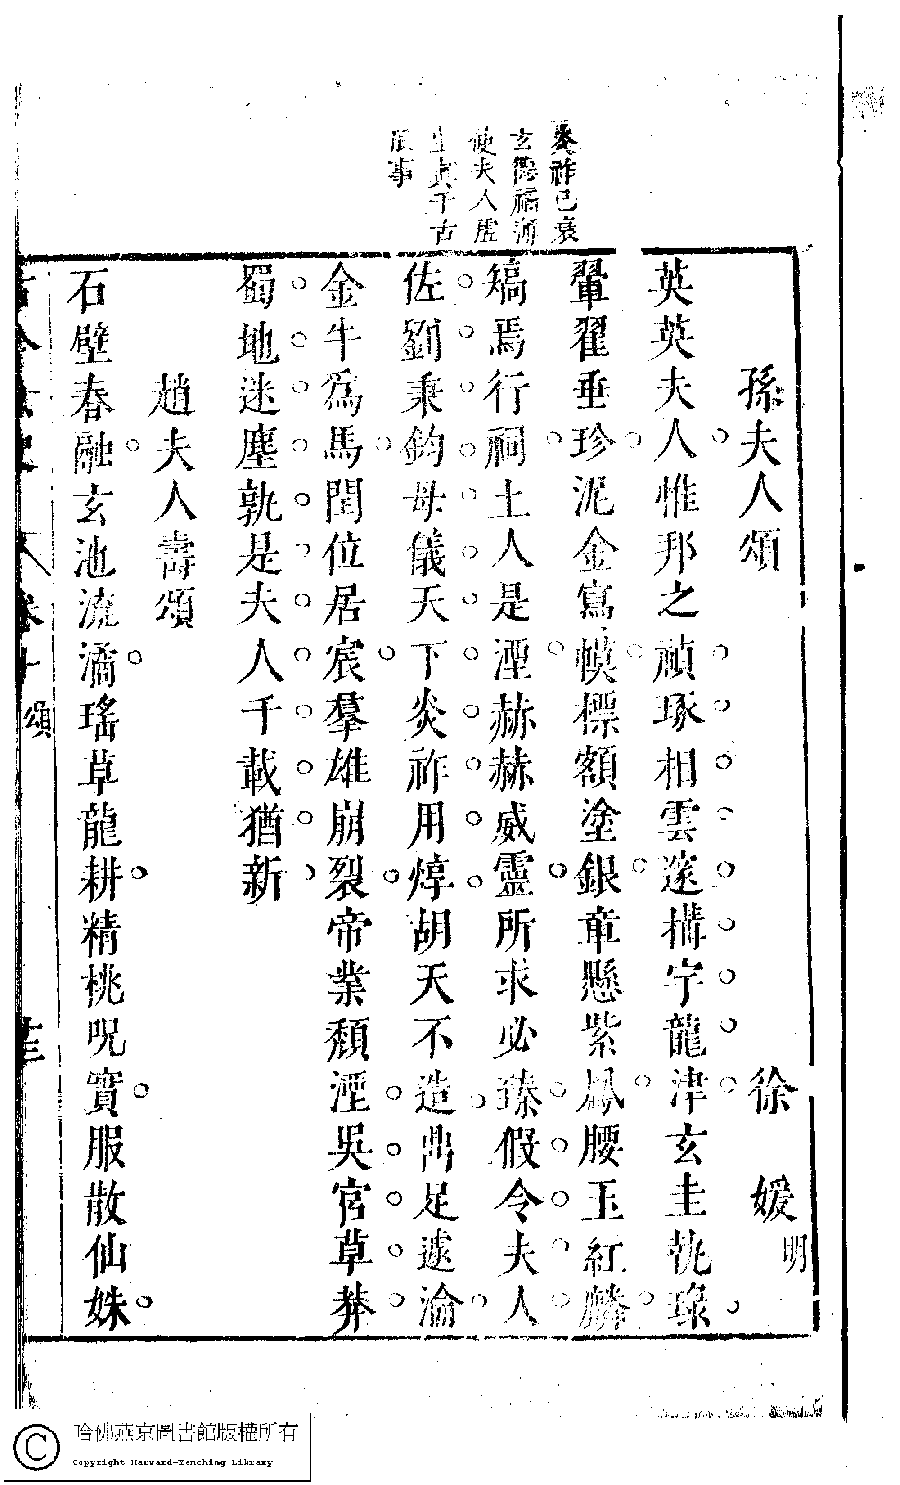 炎祚已衰
玄德福薄
使夫人虛
生眞千古
恨事
孫夫人頌
徐媛明
英英夫人惟邦之禎琢相雲遂搆宇龍津玄圭執琭
翬翟垂珍泥金寫幙標額塗銀章懸紫鳳腰玉紅麟
縞焉行祠土人是湮赫赫威靈所求必臻假令夫人
佐劉秉鈞母儀天下炎祚用焞胡天不造鼎足遽淪
金牛爲馬閏位居宸羣雄崩裂帝業頹湮吳宮草莽
蜀地迷塵孰是夫人千載猶新
趙夫人壽頌
石壁春融玄池流潏瑤草龍耕精桃呪實服散仙姝
卷十 頌
哈佛燕京圖書館版權所有
Copyright Harvard-Yenching Library